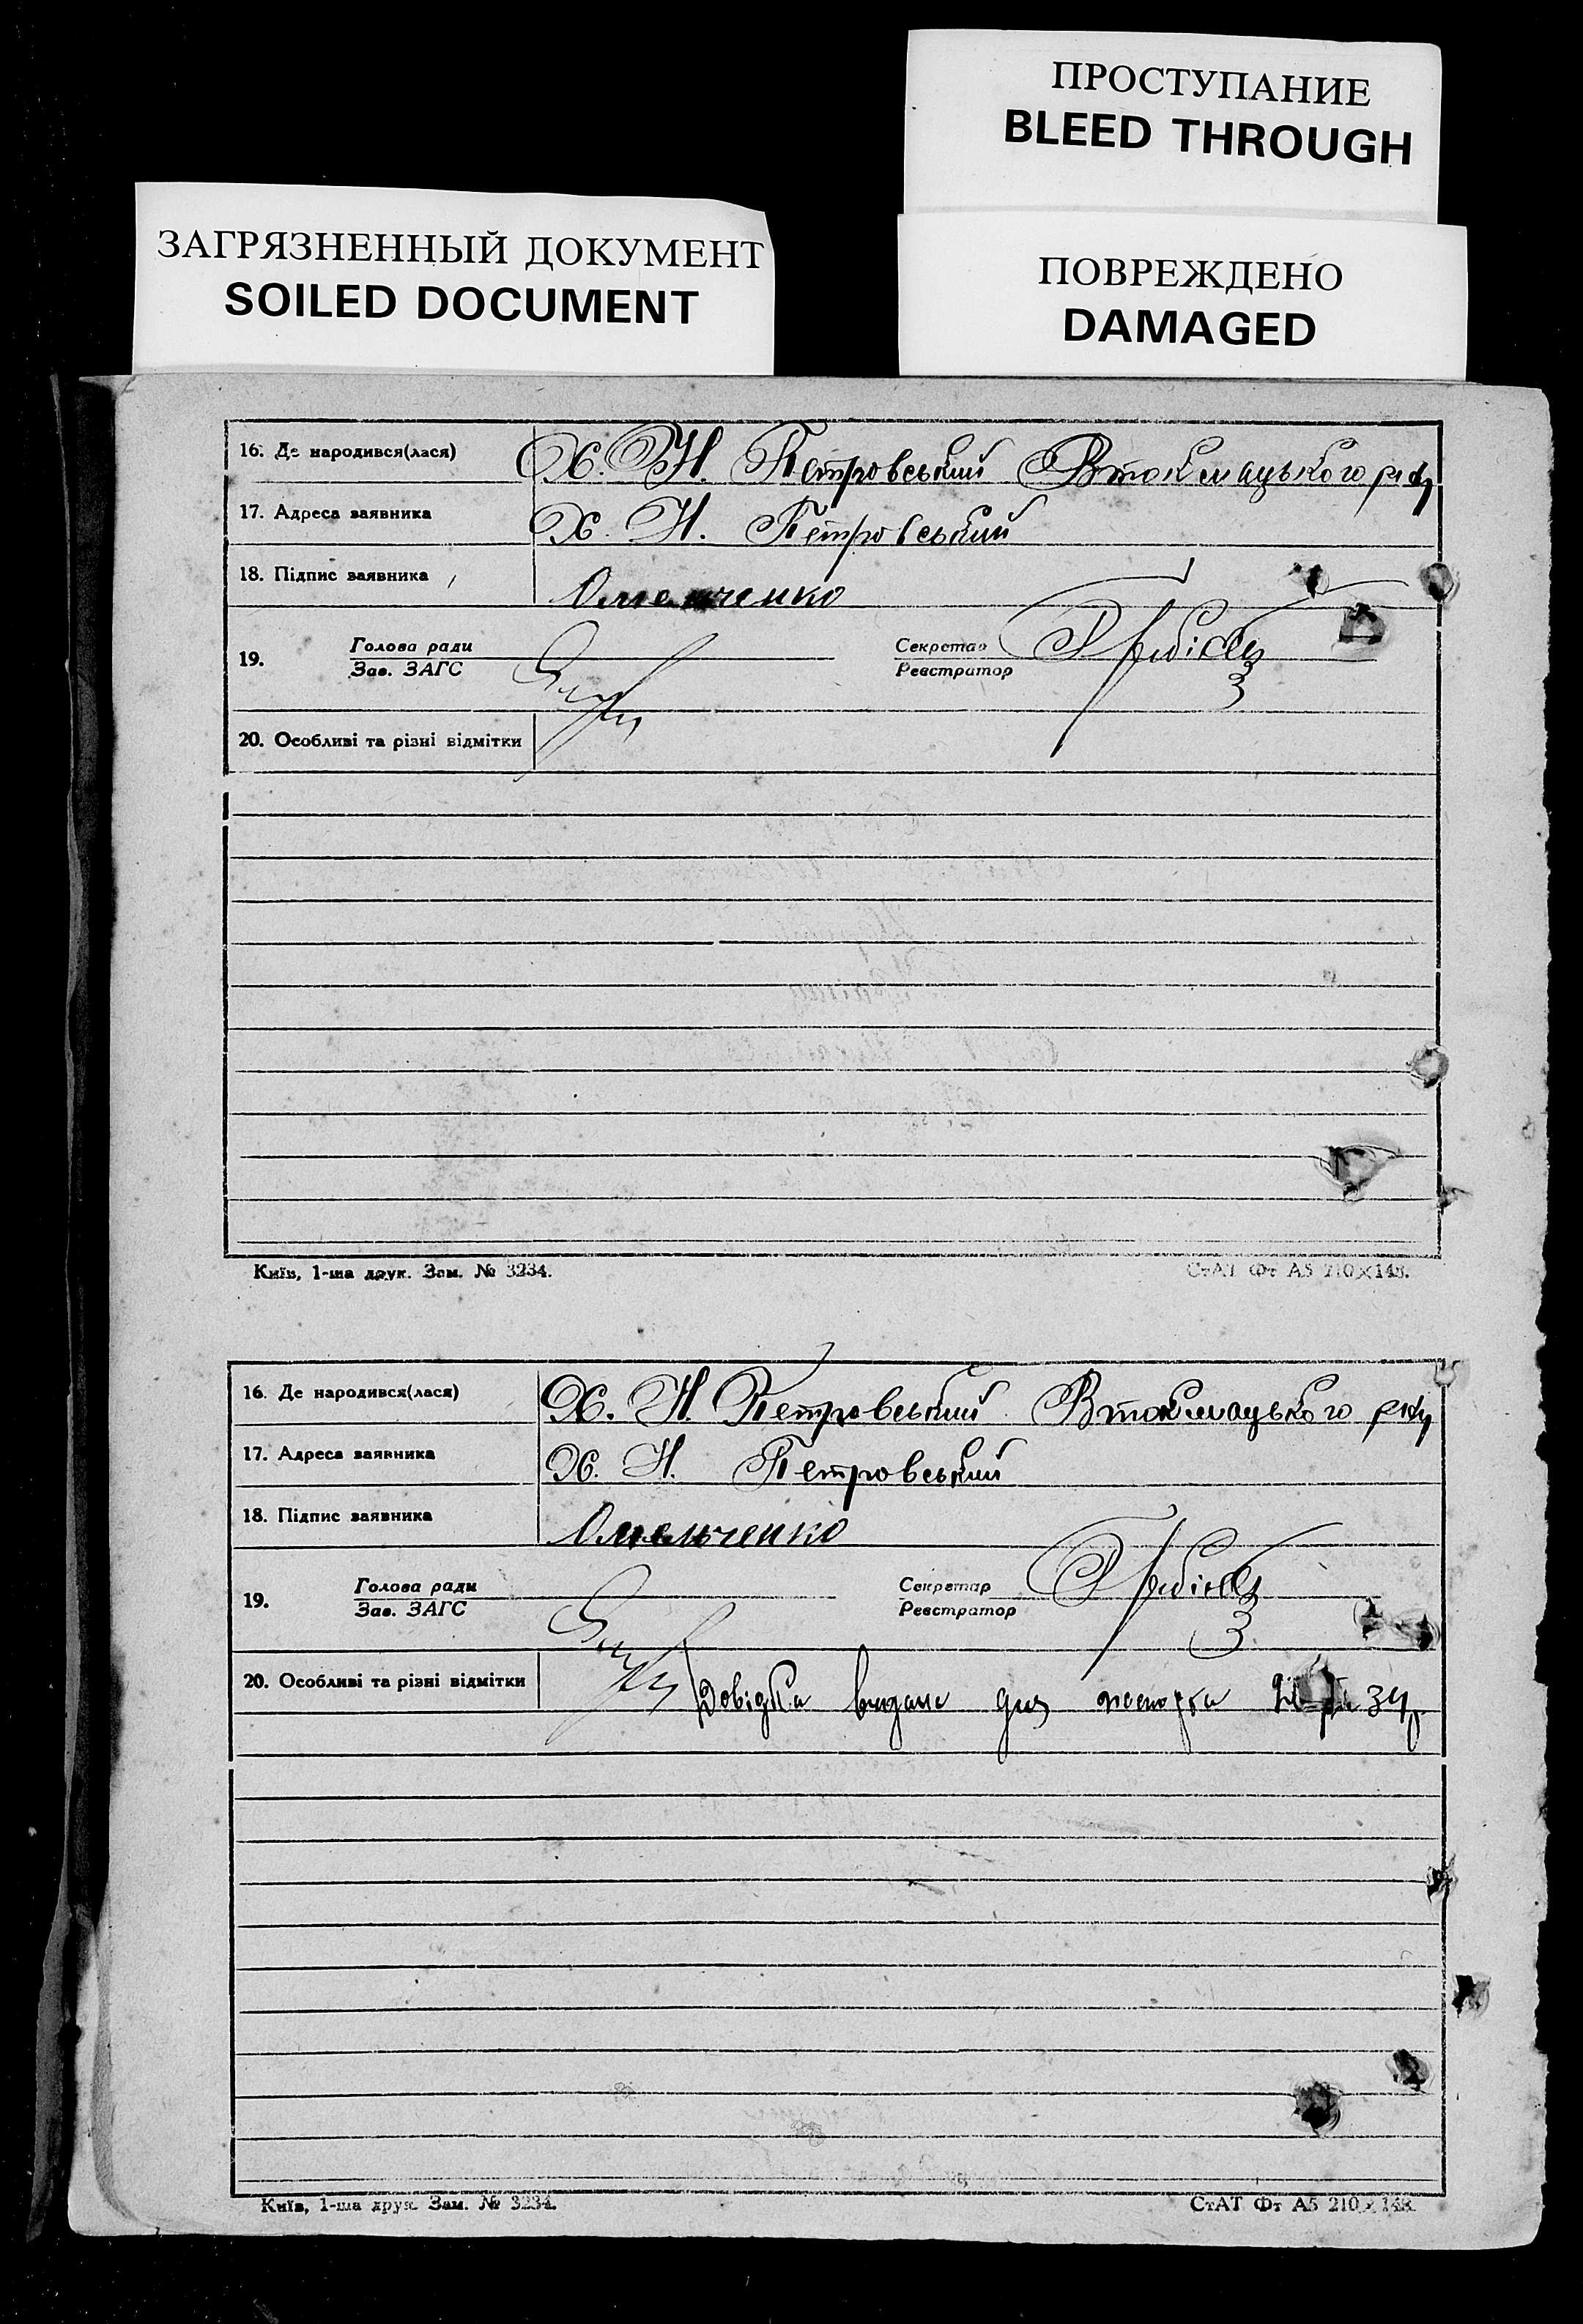 ПРОСТУПАНИЕ
BLEED THROUGH
ЗАГРЯЗНЕННЫЙ ДОКУМЕНТ
SOILED DOCUMENT
ПОВРЕЖДЕНО
DAMAGED
16. Де народився(лася) Х. Н. Петровський Втокмацького р-ну
17. Адреса заявника Х. Н. Петровський
18. Підпис заявника Омельченко
19. Голова ради Секретар
Зав. ЗАГС Реєстратор
20. Особливі та різні відмітки
Київ, 1-ша друк. Зам. № 3234. СтАТ Фт А5 210×148.
16. Де народився(лася) Х. Н. Петровський Втокмацького р-ну
17. Адреса заявника Х. Н. Петровський
18. Підпис заявника Омельченко
19. Голова ради Секретар
Зав. ЗАГС Реєстратор
20. Особливі та різні відмітки Довідка видана для
Київ, 1-ша друк. Зам. № 3234. СтАТ Фт А5 210×148.